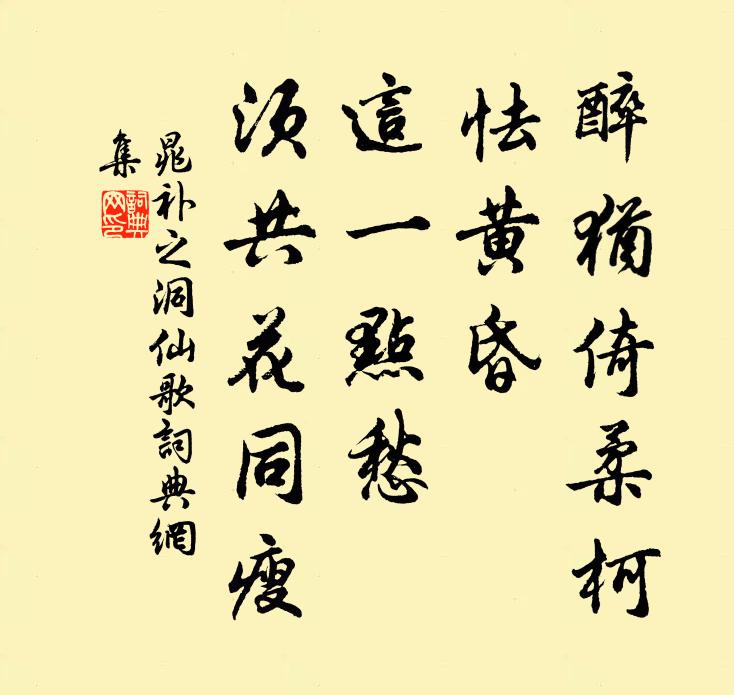 醉猶倚柔柯
怯黃昏
這一點愁
須共花同瘦
晁补之洞仙歌詞典網
集
詞典網印